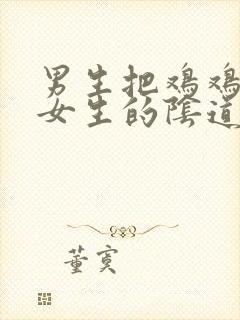 男生把鸡鸡
女生的陰道
董寞